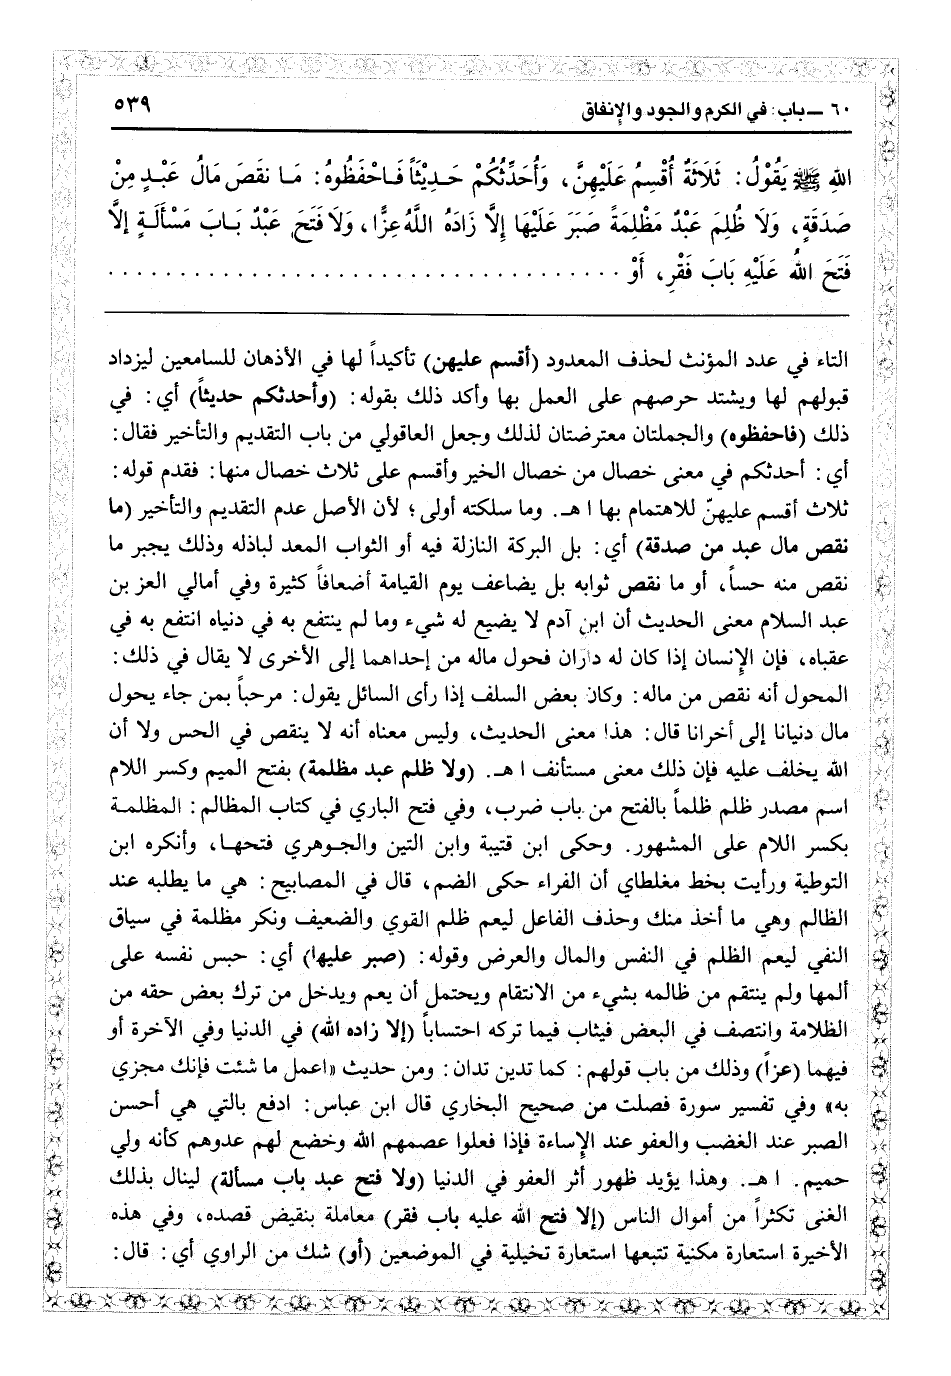 ٦٠ ـ باب: في الكرم والجود والإنفاق
٥٣٩
اللهِ ﷺ يَقُوْلُ: ثَلَاثَةٌ أُقْسِمُ عَلَيْهِنَّ، وَأُحَدِّثُكُمْ حَـدِيْثاً فَـاحْفَظُوهُ: مَـا نَقَصَ مَالُ عَبْـدٍ مِنْ
صَدَقَةٍ، وَلَا ظُلِمَ عَبْدٌ مَظْلِمَةً صَبَرَ عَلَيْهَا إِلَّا زَادَهُ اللَّهُ عِزًّا، وَلَا فَتَحَ عَبْدٌ بَـابَ مَسْأَلَـةٍ إِلَّا
فَتَحَ اللهُ عَلَيْهِ بَابَ فَقْرٍ، أَوْ . . . . . . . . . . . . . . . . . . . . . . . . . . . . . . . . . . . .
التاء في عدد المؤنث لحذف المعدود (أقسم عليهن) تأكيداً لها في الأذهان للسامعين ليزداد
قبولهم لها ويشتد حرصهم على العمل بها وأكد ذلك بقوله: (وأحدثكم حديثاً) أي: في
ذلك (فاحفظوه) والجملتان معترضتان لذلك وجعل العاقولي من باب التقديم والتأخير فقال:
أي: أحدثكم في معنى خصال من خصال الخير وأقسم على ثلاث خصال منها: فقدم قوله:
ثلاث أقسم عليهنّ للاهتمام بها ا هـ. وما سلكته أولى؛ لأن الأصل عدم التقديم والتأخير (ما
نقص مال عبد من صدقة) أي: بل البركة النازلة فيه أو الثواب المعد لباذله وذلك يجبر ما
نقص منه حساً، أو ما نقص ثوابه بل يضاعف يوم القيامة أضعافاً كثيرة وفي أمالي العز بن
عبد السلام معنى الحديث أن ابن آدم لا يضيع له شيء وما لم ينتفع به في دنياه انتفع به في
عقباه، فإن الإنسان إذا كان له داران فحول ماله من إحداهما إلى الأخرى لا يقال في ذلك:
المحول أنه نقص من ماله: وكان بعض السلف إذا رأى السائل يقول: مرحباً بمن جاء يحول
مال دنيانا إلى أخرانا قال: هذا معنى الحديث، وليس معناه أنه لا ينقص في الحس ولا أن
الله يخلف عليه فإن ذلك معنى مستأنف ا هـ. (ولا ظلم عبد مظلمة) بفتح الميم وكسر اللام
اسم مصدر ظلم ظلماً بالفتح من باب ضرب، وفي فتح الباري في كتاب المظالم: المظلمـة
بكسر اللام على المشهور. وحكى ابن قتيبة وابن التين والجـوهري فتحهـا، وأنكره ابن
التوطية ورأيت بخط مغلطاي أن الفراء حكى الضم، قال في المصابيح: هي ما يطلبه عند
الظالم وهي ما أخذ منك وحذف الفاعل ليعم ظلم القوي والضعيف ونكر مظلمة في سياق
النفي ليعم الظلم في النفس والمال والعرض وقوله: (صبر عليها) أي: حبس نفسه على
ألمها ولم ينتقم من ظالمه بشيء من الانتقام ويحتمل أن يعم ويدخل من ترك بعض حقه من
الظلامة وانتصف في البعض فيثاب فيما تركه احتساباً (إلا زاده الله) في الدنيا وفي الآخرة أو
فيهما (عزاً) وذلك من باب قولهم: كما تدين تدان: ومن حديث «اعمل ما شئت فإنك مجزي
به» وفي تفسير سورة فصلت من صحيح البخاري قال ابن عباس: ادفع بالتي هي أحسن
الصبر عند الغضب والعفو عند الإساءة فإذا فعلوا عصمهم الله وخضع لهم عدوهم كأنه ولي
حميم. ا هـ. وهذا يؤيد ظهور أثر العفو في الدنيا (ولا فتح عبد باب مسألة) لينال بذلك
الغنى تكثراً من أموال الناس (إلا فتح الله عليه باب فقر) معاملة بنقيض قصده، وفي هذه
الأخيرة استعارة مكنية تتبعها استعارة تخيلية في الموضعين (أو) شك من الراوي أي: قال: